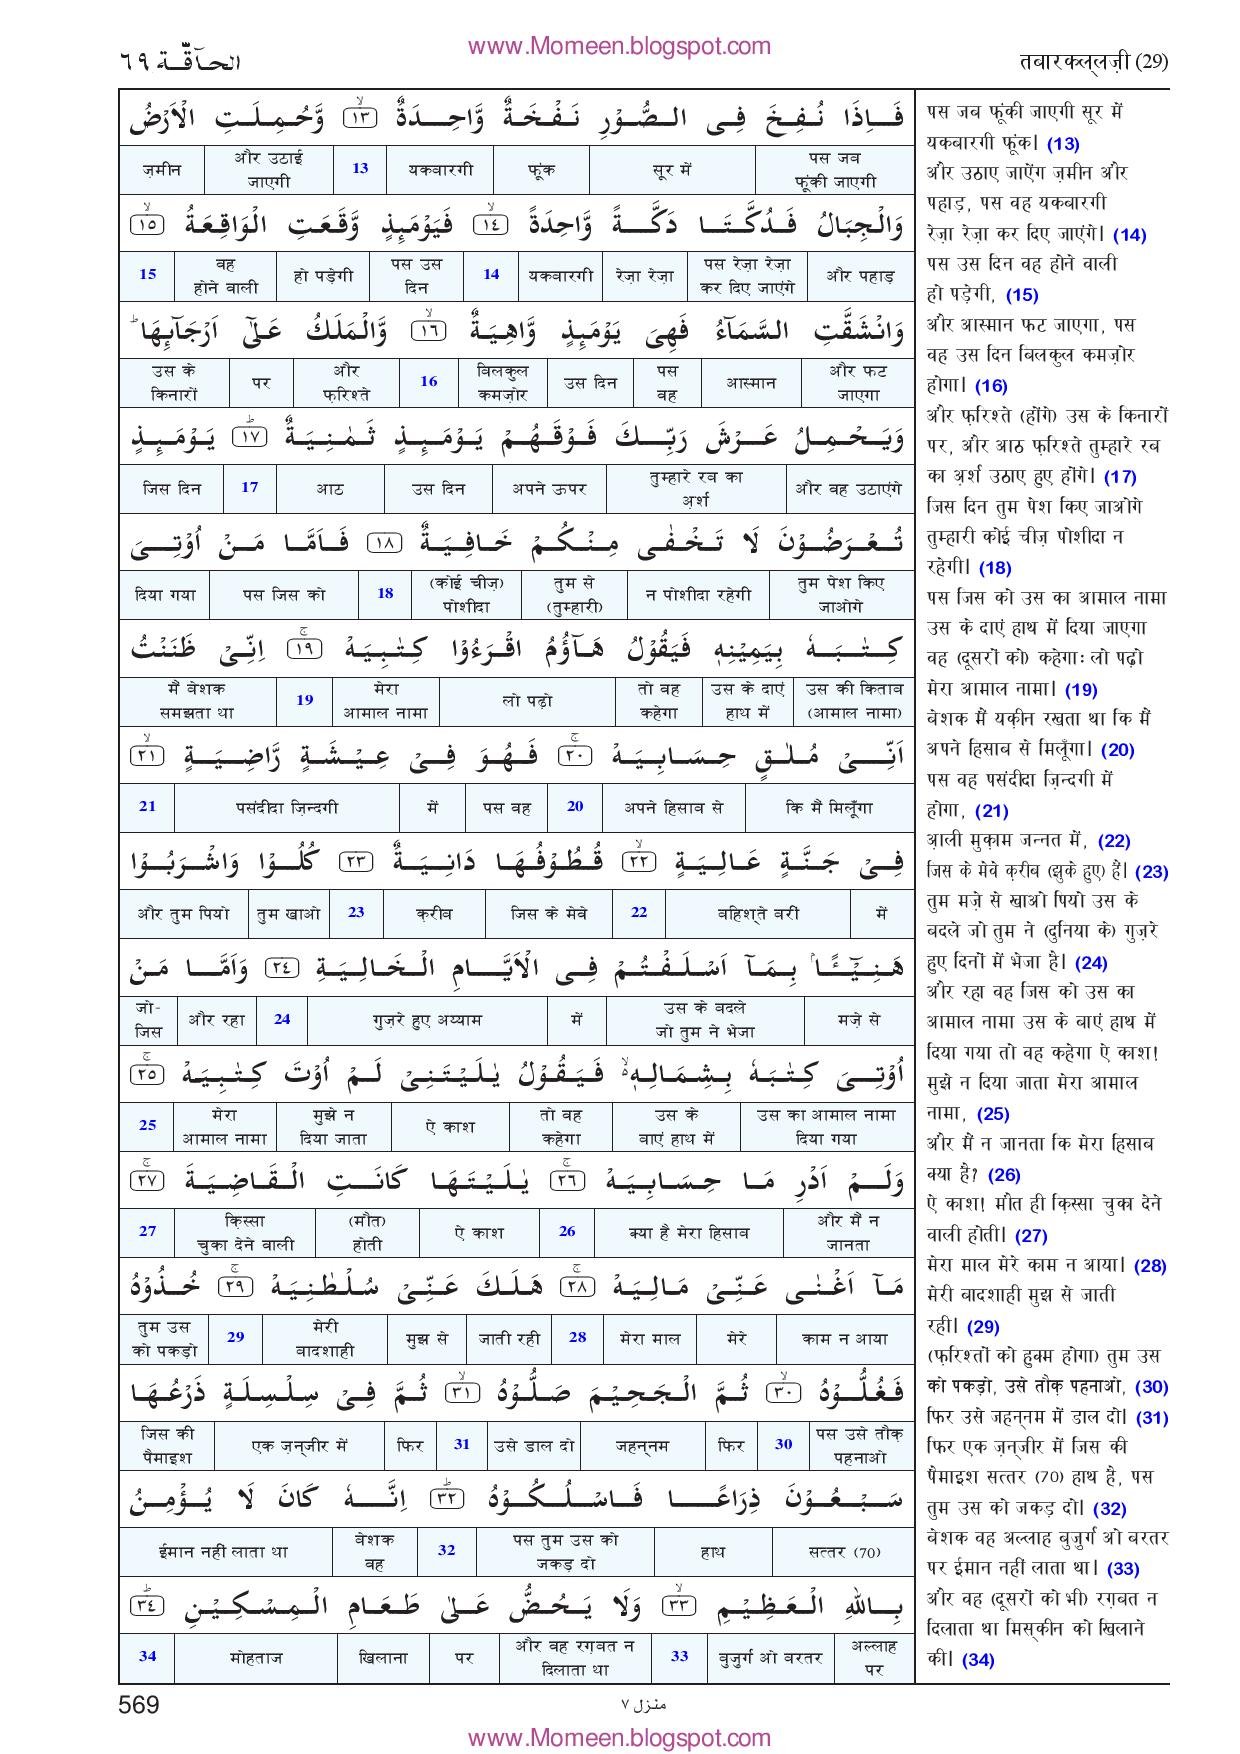 www.Momeen.blogspot.com
الحآقّة ٦٩
तबारकल्लज़ी (29)
فَاِذَا نُفِخَ فِى الصُّوْرِ نَفْخَةٌ وَّاحِدَةٌ ١٣ وَّحُمِلَتِ الْاَرْضُ
पस जब फूंकी जाएगी | सूर में | फूंक | यकबारगी | 13 | और उठाई जाएगी | ज़मीन
وَالْجِبَالُ فَدُكَّتَا دَكَّةً وَّاحِدَةً ١٤ فَيَوْمَىِٕذٍ وَّقَعَتِ الْوَاقِعَةُ ١٥
और पहाड़ | पस रेज़ा रेज़ा कर दिए जाएंगे | रेज़ा रेज़ा | यकबारगी | 14 | पस उस दिन | हो पड़ेगी | वह होने वाली | 15
وَانْشَقَّتِ السَّمَآءُ فَهِىَ يَوْمَىِٕذٍ وَّاهِيَةٌ ١٦ وَّالْمَلَكُ عَلٰٓى اَرْجَآىِٕهَا ؕ
और फट जाएगा | आस्मान | पस वह | उस दिन | बिलकुल कमज़ोर | 16 | और फ़रिश्ते | पर | उस के किनारों
وَيَحْمِلُ عَرْشَ رَبِّكَ فَوْقَهُمْ يَوْمَىِٕذٍ ثَمٰنِيَةٌ ١٧ يَوْمَىِٕذٍ
और वह उठाएंगे | तुम्हारे रब का अ़र्श | अपने ऊपर | उस दिन | आठ | 17 | जिस दिन
تُعْرَضُوْنَ لَا تَخْفٰى مِنْكُمْ خَافِيَةٌ ١٨ فَاَمَّا مَنْ اُوْتِىَ
तुम पेश किए जाओगे | न पोशीदा रहेगी | तुम से (तुम्हारी) | (कोई चीज़) पोशीदा | 18 | पस जिस को | दिया गया
كِتٰبَهٗ بِيَمِيْنِهٖ فَيَقُوْلُ هَآؤُمُ اقْرَءُوْا كِتٰبِيَهْ ١٩ اِنِّىْ ظَنَنْتُ
उस की किताब (आमाल नामा) | उस के दाएं हाथ में | तो वह कहेगा | लो पढ़ो | मेरा आमाल नामा | 19 | मैं बेशक समझता था
اَنِّىْ مُلٰقٍ حِسَابِيَهْ ٢٠ فَهُوَ فِىْ عِيْشَةٍ رَّاضِيَةٍ ٢١
कि मैं मिलूँगा | अपने हिसाब से | 20 | पस वह | में | पसंदीदा ज़िन्दगी | 21
فِىْ جَنَّةٍ عَالِيَةٍ ٢٢ قُطُوْفُهَا دَانِيَةٌ ٢٣ كُلُوْا وَاشْرَبُوْا
में | बहिश्ते बरीं | 22 | जिस के मेवे | क़रीब | 23 | तुम खाओ | और तुम पियो
هَنِيْٓـًٔاۢ بِمَآ اَسْلَفْتُمْ فِى الْاَيَّامِ الْخَالِيَةِ ٢٤ وَاَمَّا مَنْ
मज़े से | उस के बदले जो तुम ने भेजा | में | गुज़रे हुए अय्याम | 24 | और रहा | जो-जिस
اُوْتِىَ كِتٰبَهٗ بِشِمَالِهٖ ۙ فَيَقُوْلُ يٰلَيْتَنِىْ لَمْ اُوْتَ كِتٰبِيَهْ ٢٥
उस का आमाल नामा दिया गया | उस के बाएं हाथ में | तो वह कहेगा | ऐ काश | मुझे न दिया जाता | मेरा आमाल नामा | 25
وَلَمْ اَدْرِ مَا حِسَابِيَهْ ٢٦ يٰلَيْتَهَا كَانَتِ الْقَاضِيَةَ ٢٧
और मैं न जानता | क्या है मेरा हिसाब | 26 | ऐ काश | (मौत) होती | क़िस्सा चुका देने वाली | 27
مَآ اَغْنٰى عَنِّىْ مَالِيَهْ ٢٨ هَلَكَ عَنِّىْ سُلْطٰنِيَهْ ٢٩ خُذُوْهُ
काम न आया | मेरे | मेरा माल | 28 | जाती रही | मुझ से | मेरी बादशाही | 29 | तुम उस को पकड़ो
فَغُلُّوْهُ ٣٠ ثُمَّ الْجَحِيْمَ صَلُّوْهُ ٣١ ثُمَّ فِىْ سِلْسِلَةٍ ذَرْعُهَا
पस उसे तौक़ पहनाओ | 30 | फिर | जहन्नम | उसे डाल दो | 31 | फिर | एक ज़न्जीर में | जिस की पैमाइश
سَبْعُوْنَ ذِرَاعًا فَاسْلُكُوْهُ ٣٢ اِنَّهٗ كَانَ لَا يُؤْمِنُ
सत्तर (70) | हाथ | पस तुम उस को जकड़ दो | 32 | बेशक वह | ईमान नहीं लाता था
بِاللّٰهِ الْعَظِيْمِ ٣٣ وَلَا يَحُضُّ عَلٰى طَعَامِ الْمِسْكِيْنِ ٣٤
अल्लाह पर | बुज़ुर्ग ओ बरतर | 33 | और वह रग़बत न दिलाता था | पर | खिलाना | मोहताज | 34
पस जब फूंकी जाएगी सूर में
यकबारगी फूंक। (13)
और उठाए जाएंग ज़मीन और
पहाड़, पस वह यकबारगी
रेज़ा रेज़ा कर दिए जाएंगे। (14)
पस उस दिन वह होने वाली
हो पड़ेगी, (15)
और आस्मान फट जाएगा, पस
वह उस दिन बिलकुल कमज़ोर
होगा। (16)
और फ़रिश्ते (होंगे) उस के किनारों
पर, और आठ फ़रिश्ते तुम्हारे रब
का अ़र्श उठाए हुए होंगे। (17)
जिस दिन तुम पेश किए जाओगे
तुम्हारी कोई चीज़ पोशीदा न
रहेगी। (18)
पस जिस को उस का आमाल नामा
उस के दाएं हाथ में दिया जाएगा
वह (दूसरों को) कहेगाः लो पढ़ो
मेरा आमाल नामा। (19)
बेशक मैं यक़ीन रखता था कि मैं
अपने हिसाब से मिलूँगा। (20)
पस वह पसंदीदा ज़िन्दगी में
होगा, (21)
आ़ली मुक़ाम जन्नत में, (22)
जिस के मेवे क़रीब (झुके हुए) हैं। (23)
तुम मज़े से खाओ पियो उस के
बदले जो तुम ने (दुनिया के) गुज़रे
हुए दिनों में भेजा है। (24)
और रहा वह जिस को उस का
आमाल नामा उस के बाएं हाथ में
दिया गया तो वह कहेगा ऐ काश!
मुझे न दिया जाता मेरा आमाल
नामा, (25)
और मैं न जानता कि मेरा हिसाब
क्या है? (26)
ऐ काश! मौत ही क़िस्सा चुका देने
वाली होती। (27)
मेरा माल मेरे काम न आया। (28)
मेरी बादशाही मुझ से जाती
रही। (29)
(फ़रिश्तों को हुक्म होगा) तुम उस
को पकड़ो, उसे तौक़ पहनाओ, (30)
फिर उसे जहन्नम में डाल दो। (31)
फिर एक ज़न्जीर में जिस की
पैमाइश सत्तर (70) हाथ है, पस
तुम उस को जकड़ दो। (32)
बेशक वह अल्लाह बुज़ुर्ग ओ बरतर
पर ईमान नहीं लाता था। (33)
और वह (दूसरों को भी) रग़बत न
दिलाता था मिस्कीन को खिलाने
की। (34)
569
منزل ٧
www.Momeen.blogspot.com